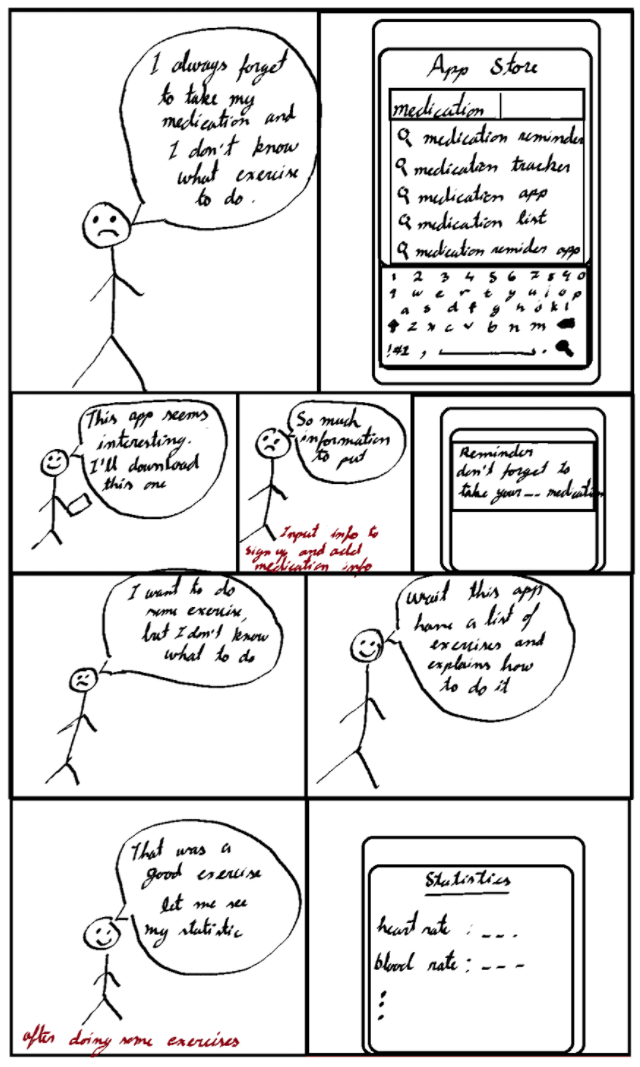 I always forget
to take my
medication and
I don't know
what exercise
to do.
App Store
medication
medication reminder
medication tracker
medication app
medication list
medication reminder app
1 2 3 4 5 6 7 8 9 0
q w e r t y u i o p
a s d f g h j k l
z x c v b n m
!#1 , .
This app seems
interesting.
I'll download
this one
So much
information
to put
Input info to
sign up and add
medication info
Reminder
don't forget to
take your _ _ medication
I want to do
some exercise,
but I don't know
what to do
wait this app
have a list of
exercises and
explains how
to do it
That was a
good exercise
let me see
my statistic
after doing some exercises
Statistics
heart rate : _ _ _
blood rate : _ _ _